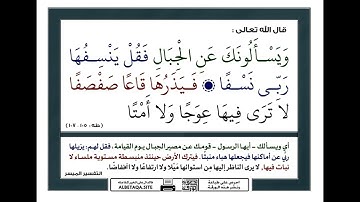 قال الله تعالى :
وَيَسْأَلُونَكَ عَنِ الْجِبَالِ فَقُلْ يَنسِفُهَا
رَبِّي نَسْفًا ۝ فَيَذَرُهَا قَاعًا صَفْصَفًا
لَا تَرَى فِيهَا عِوَجًا وَلَا أَمْتًا
(طه: ١٠٥-١٠٧)
أي ويسألك - أيها الرسول - قومك عن مصير الجبال يوم القيامة، فقل لهم: يزيلها
ربي عن أماكنها فيجعلها هباء منبثًا. فيترك الأرض حينئذ منبسطة مستوية ملساء لا
نبات فيها, لا يرى الناظر إليها من استوائها مَيْلا ولا ارتفاعًا ولا انخفاضًا.
التفسير الميسر
ALBETAQA.SITE